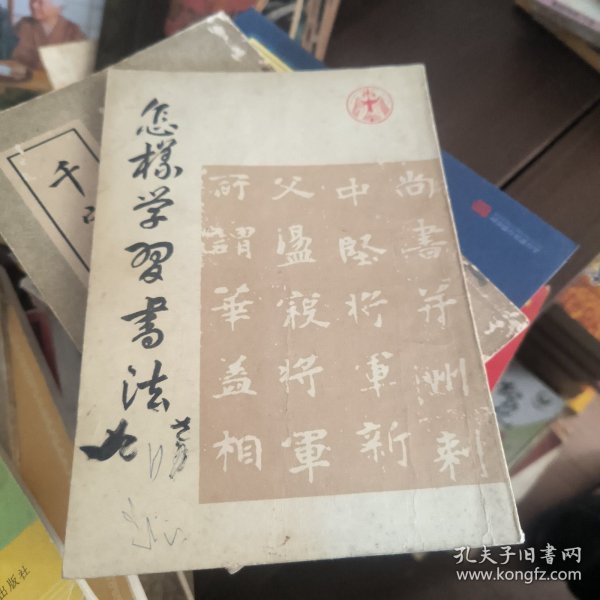 怎样学习书法
尚書并州刺
中堅将軍新
父盪寇将軍
所謂華盖相
千
出版社
孔夫子旧书网
www.kongfz.com